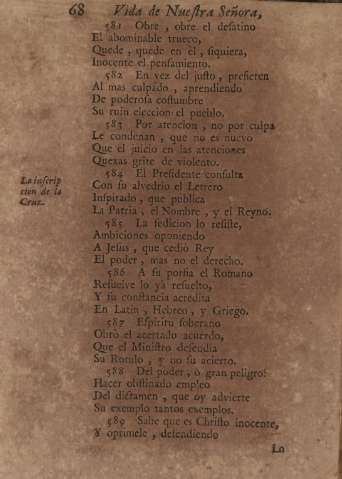 68 Vida de Nuestra Señora,
581 Obre, obre el desatino
El abominable trueco,
Quede, quede en èl, siquiera,
Inocente el pensamiento.
582 En vez del justo, prefieren
Al mas culpado, aprendiendo
De poderosa costumbre
Su ruin eleccion el pueblo.
583 Por atencion, no por culpa
Le condenan, que no es nuevo
Que el juicio en las atenciones
Quexas grite de violento.
584 El Presidente consulta
Con su alvedrio el Letrero
Inspirado, que publica
La Patria, el Nombre, y el Reyno.
La inscrip
cion de la
Cruz.
585 La sedicion lo resiste,
Ambiciones oponiendo
A Jesus, que cediò Rey
El poder, mas no el derecho.
586 A su porfia el Romano
Resuelve lo yà resuelto,
Y su constancia acredita
En Latin, Hebreo, y Griego.
587 Espiritu soberano
Obrò el acertado acuerdo,
Que el Ministro defendia
Su Rotulo, y no su acierto.
588 Del poder, ò gran peligro!
Hacer obstinado empleo
Del dictamen, que oy advierte
Su exemplo tantos exemplos.
589 Sabe que es Christo inocente,
Y oprimele, defendiendo
Lo